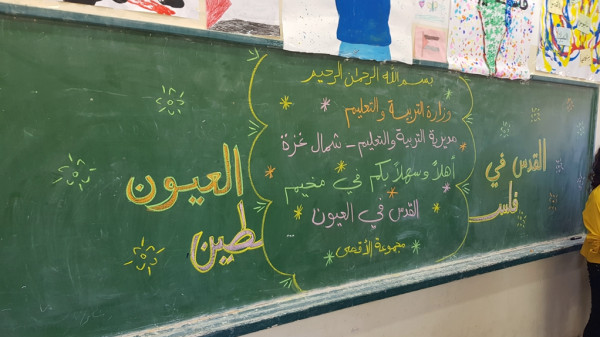 بسم الله الرحمن الرحيم
وزارة التربية والتعليم
مديرية التربية والتعليم - شمال غزة
أهلاً وسهلاً بكم في مخيم
القدس في العيون ...
مجموعة الأقصى
القدس في العيون
فلسطين